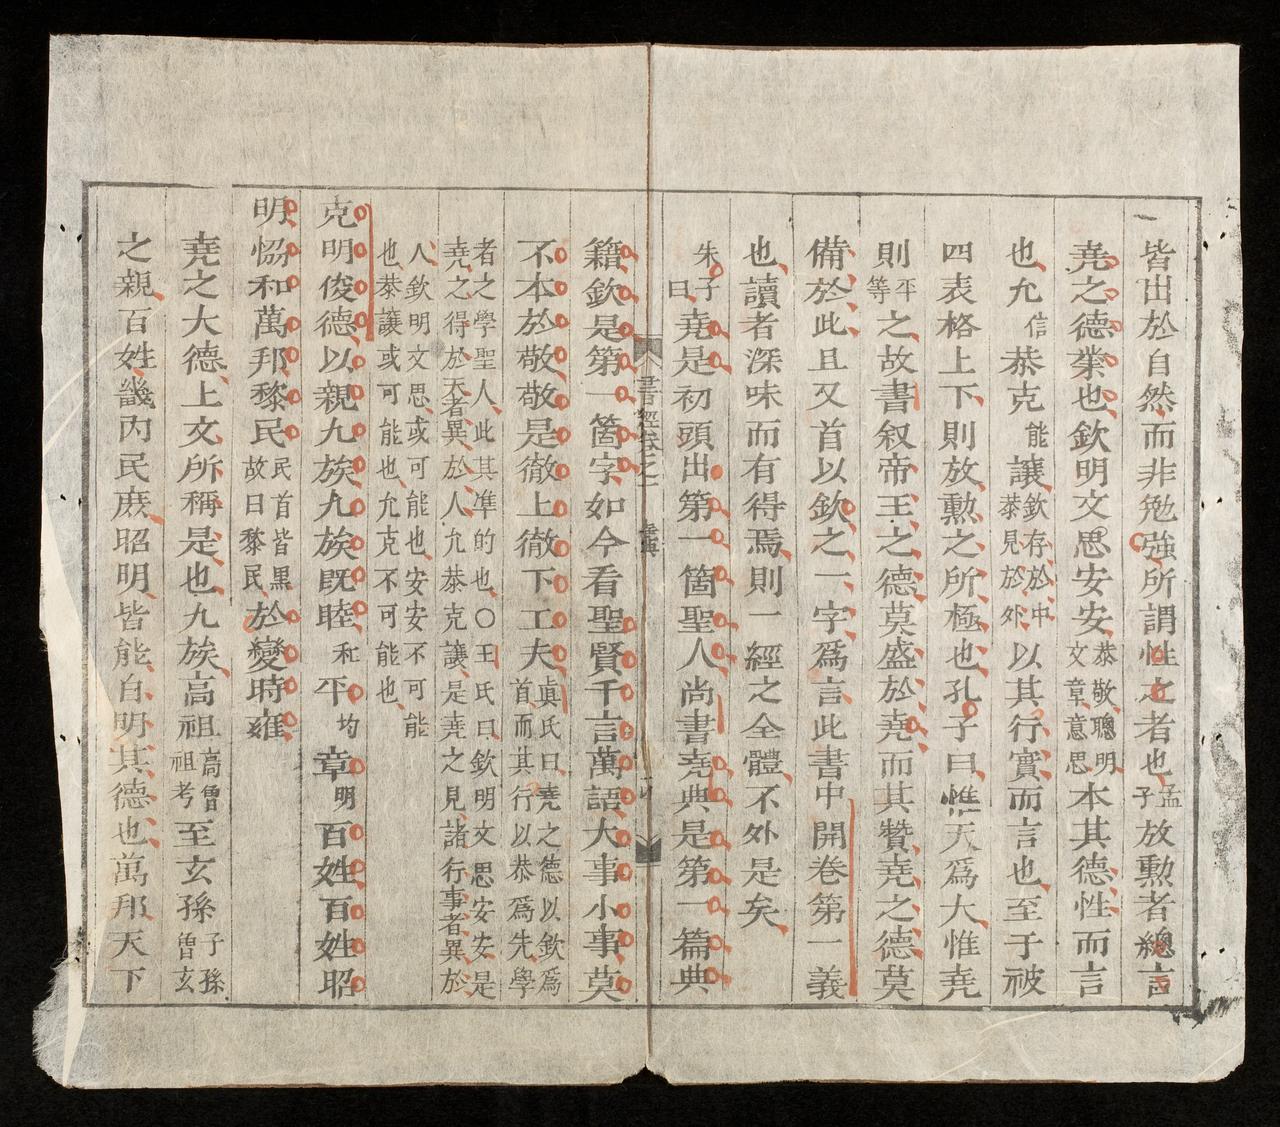 皆出於自然而非勉強所謂性之者也孟子放勲者總言
堯之德業也欽明文思安安恭敬聰明文章意思本其德性而言
也允信恭克能讓欽存於中恭見於外以其行實而言也至于被
四表格上下則放勲之所極也孔子曰惟天爲大惟堯
則平等之故書叙帝王之德莫盛於堯而其贊堯之德莫
備於此且又首以欽之一字爲言此書中開卷第一義
也讀者深味而有得焉則一經之全體不外是矣
朱子曰堯是初頭出第一箇聖人尚書堯典是第一篇典
書經卷之一 堯典
籍欽是第一箇字如今看聖賢千言萬語大事小事莫
不本於敬敬是徹上徹下工夫眞氏曰堯之德以欽爲首而其行以恭爲先學
者之學聖人此其準的也○王氏曰欽明文思安安是堯之得於天者異於人允恭克讓是堯之見諸行事者異於
人欽明文思或可能也安安不可能也恭讓或可能也允克不可能也
克明俊德以親九族九族既睦和平均章明百姓百姓昭
明恊和萬邦黎民民首皆黑故曰黎民於變時雍
堯之大德上文所稱是也九族高祖高曾祖考至玄孫子孫曾玄
之親百姓畿内民庶昭明皆能自明其德也萬邦天下